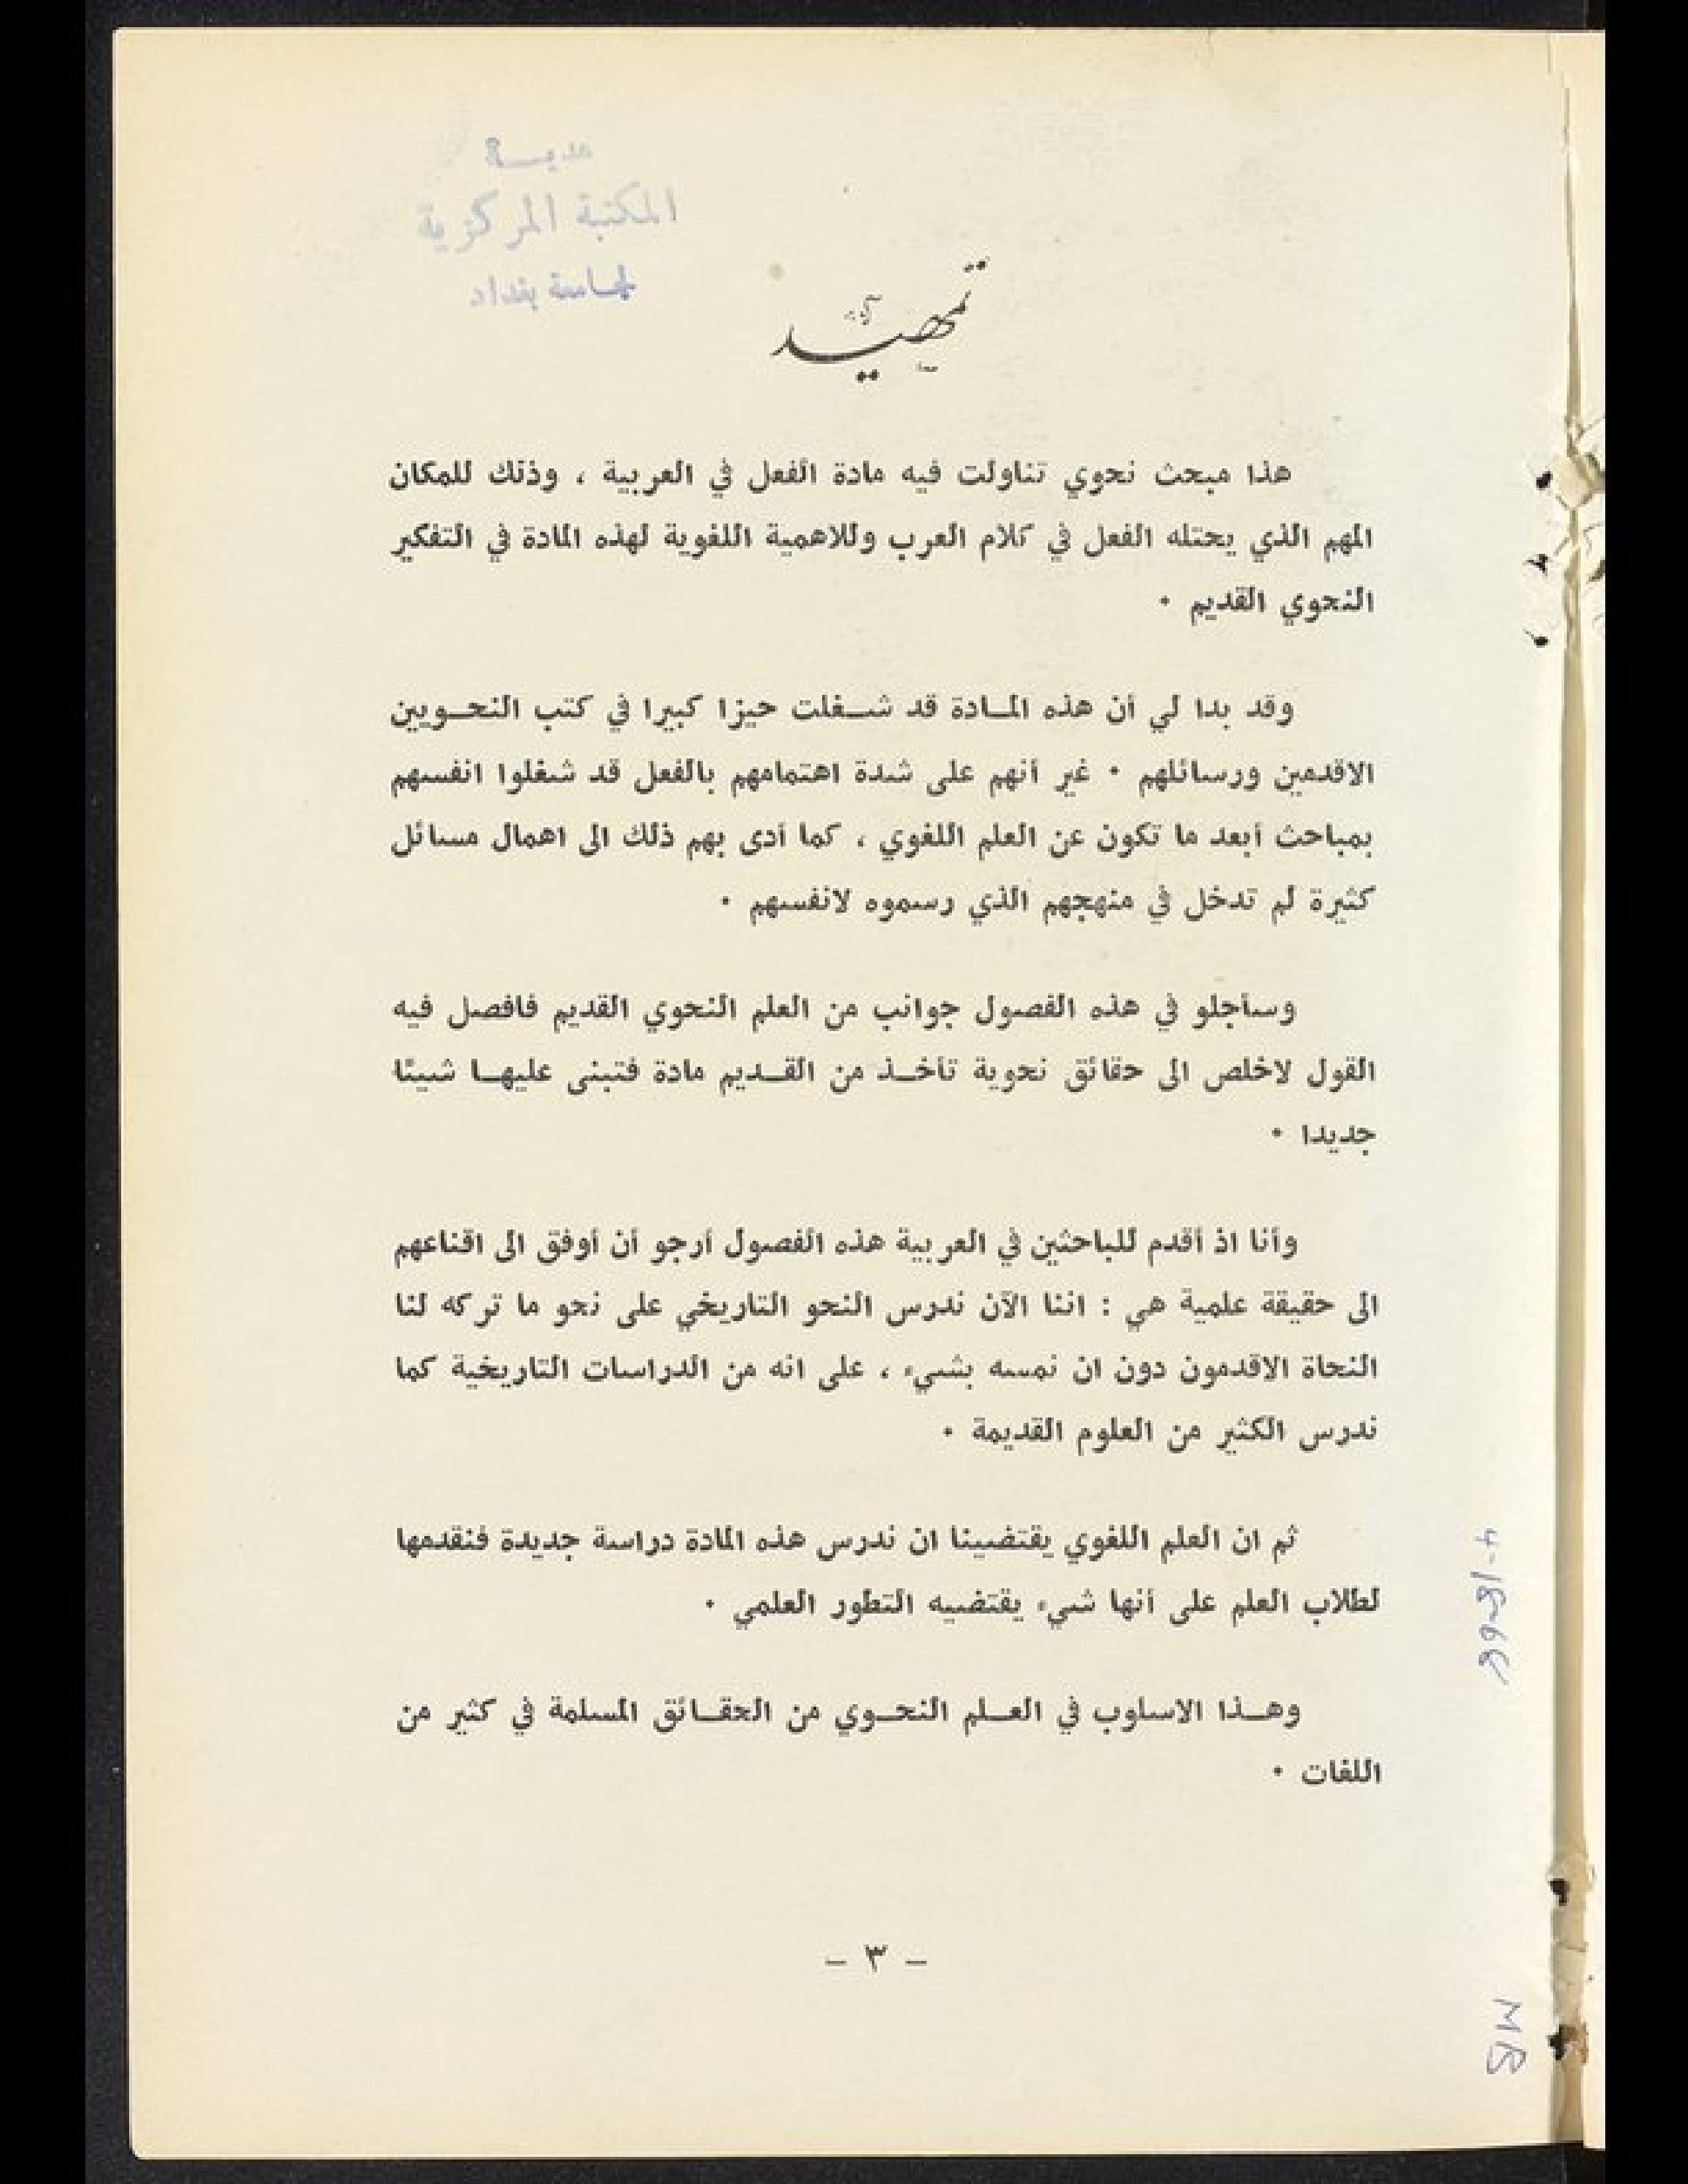 هديــة
المكتبة المركزية
لجامعة بغداد
تمهيد
هذا مبحث نحوي تناولت فيه مادة الفعل في العربية ، وذلك للمكان
المهم الذي يحتله الفعل في كلام العرب وللاهمية اللغوية لهذه المادة في التفكير
النحوي القديم ٠
وقد بدا لي أن هذه المــادة قد شــغلت حيزا كبيرا في كتب النحــويين
الاقدمين ورسائلهم ٠ غير أنهم على شدة اهتمامهم بالفعل قد شغلوا انفسهم
بمباحث أبعد ما تكون عن العلم اللغوي ، كما أدى بهم ذلك الى اهمال مسائل
كثيرة لم تدخل في منهجهم الذي رسموه لانفسهم ٠
وسأجلو في هذه الفصول جوانب من العلم النحوي القديم فافصل فيه
القول لاخلص الى حقائق نحوية تأخــذ من القــديم مادة فتبنى عليهــا شيئا
جديدا ٠
وأنا اذ أقدم للباحثين في العربية هذه الفصول أرجو أن أوفق الى اقناعهم
الى حقيقة علمية هي : اننا الآن ندرس النحو التاريخي على نحو ما تركه لنا
النحاة الاقدمون دون ان نمسه بشيء ، على انه من الدراسات التاريخية كما
ندرس الكثير من العلوم القديمة ٠
ثم ان العلم اللغوي يقتضينا ان ندرس هذه المادة دراسة جديدة فنقدمها
لطلاب العلم على أنها شيء يقتضيه التطور العلمي ٠
وهــذا الاسلوب في العــلم النحــوي من الحقــائق المسلمة في كثير من
اللغات ٠
– ٣ –
MB